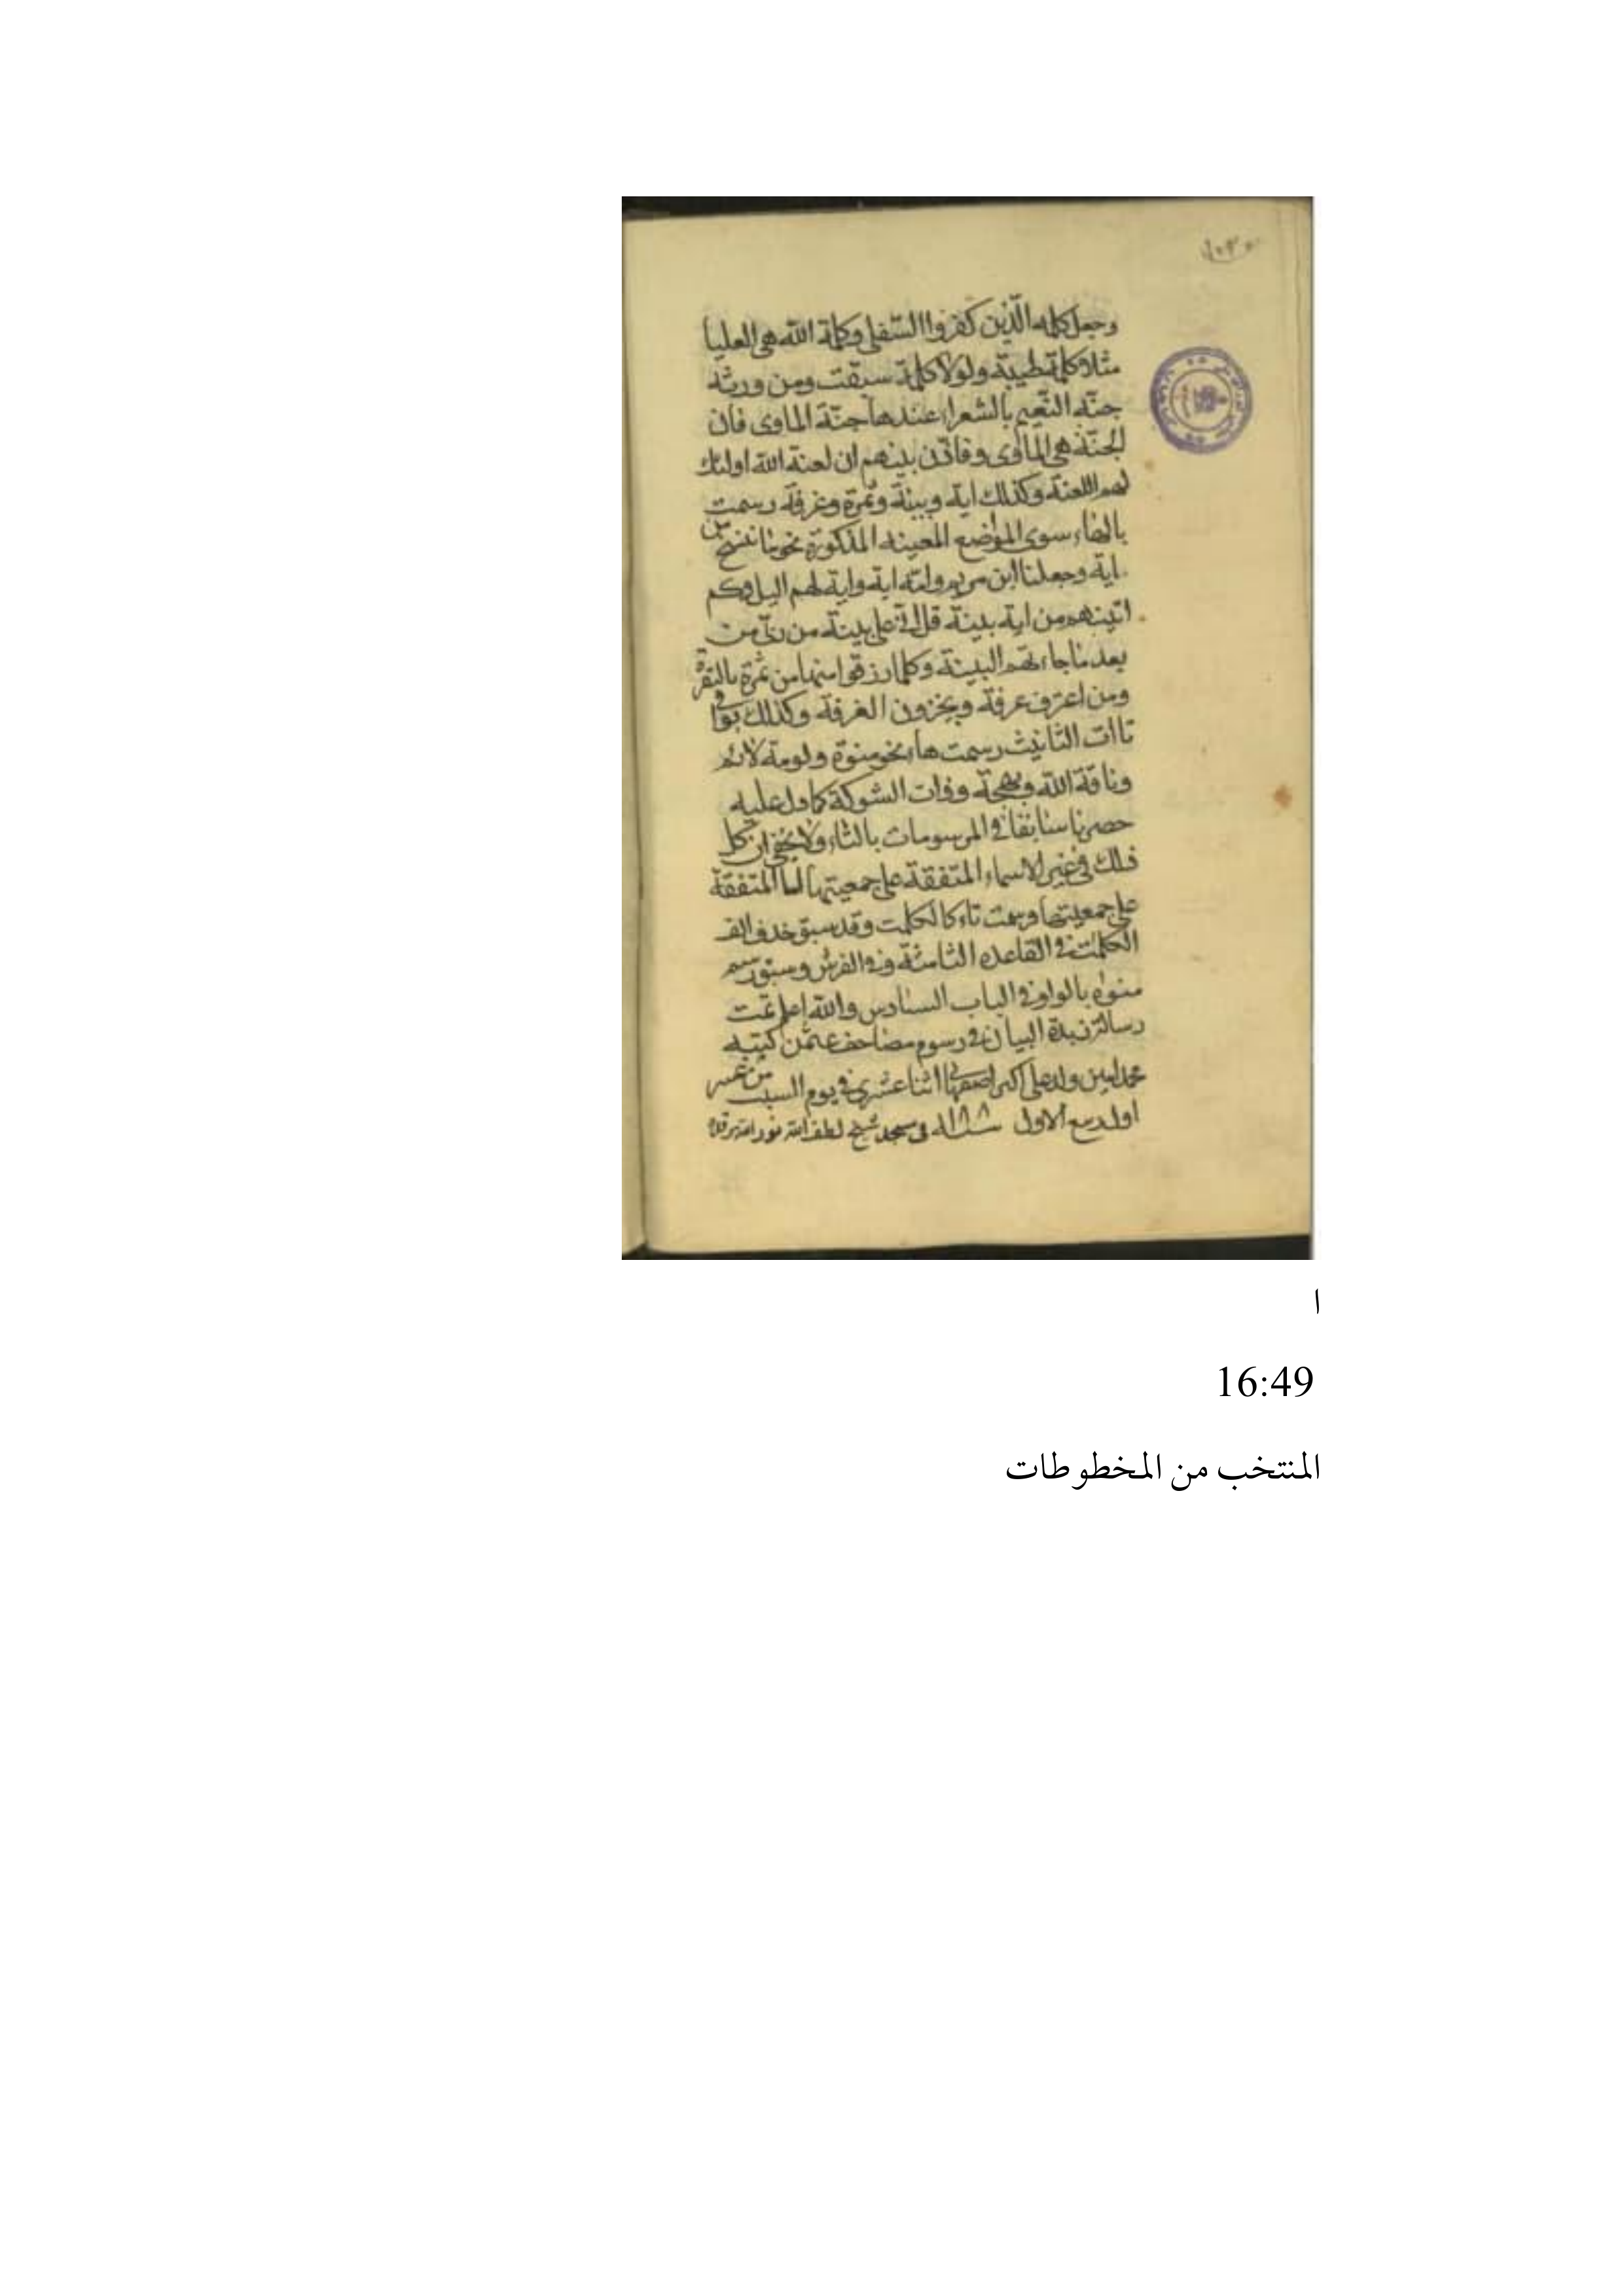 وجعل كلمه الّذين كفروا السّفلى وكلمة اللّه هى العليا
مثلا كلمة طيبة ولولا كلمة سبقت ومن ورثه
جنّه النّعيم بالشعراء عندها جنّة الماوى فان
الجنّة هى المأوى وفاذّن بينهم ان لعنة اللّه اولئك
لهم اللعنة وكذلك اية وبينة وثمرة وغرفة رسمت
بالهاء سوى المواضع المعينه المذكورة نحو ما ننسخ من
اية وجعلنا ابن مريم وامّه اية واية لهم اليل وكم
اتينهم من اية بينة قل انّى على بينة من ربّى من
بعد ما جاءتهم البينة وكلما رزقوا منها من ثمرة بالبقرة
ومن اغترف غرفة ويجزون الغرفة وكذلك بواقى
تاآت التانيث رسمت هاء نحو منوة ولومة لائم
وناقة اللّه وبهجة وذات الشوكة كما دل عليه
حصرنا سابقا فى المرسومات بالتاء ولا يخفى ان كل
ذلك فى غير الاسماء المتفقة على جمعيتها اما المتفقة
على جمعيتها فرسمت تاء كالكلمت وقد سبق حذف الف
الكلمت فى القاعده الثامنة وفى الفرش وسبق رسم
منوة بالواو فى الباب السادس واللّه اعلم تمّت
رسالة زبدة البيان فى رسوم مصاحف عثمن كتبه
محمد امين ولد على اكبر اصفهانى اثنا عشرى فى يوم السبت من عشر
اول ربيع الاول سنه ١١٨٨ فى مسجد شيخ لطف اللّه نور اللّه مرقده
ا
16:49
المنتخب من المخطوطات